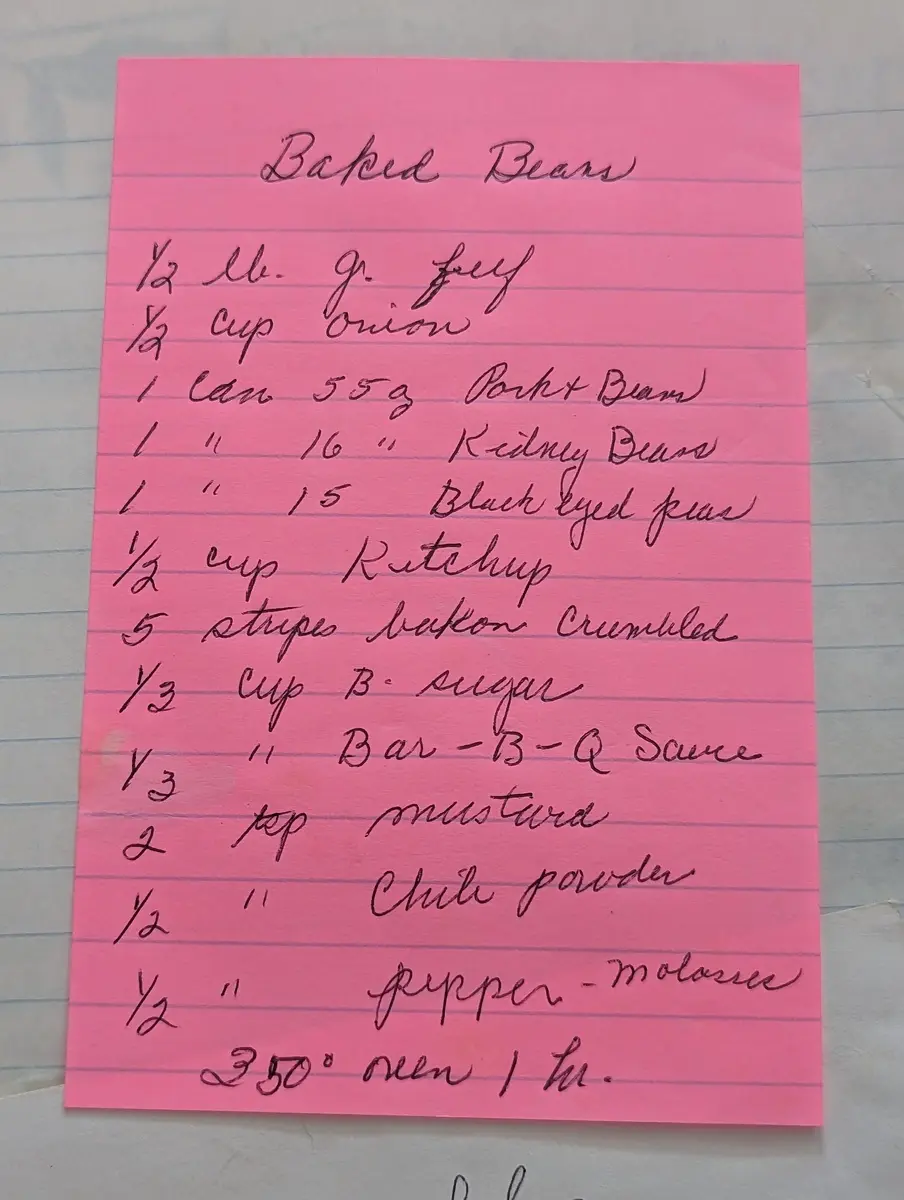 Baked Beans
1/2 lb. gr. beef
1/2 cup onion
1 Can 55 oz Pork + Beans
1 " 16 " Kidney Beans
1 " 15 Black eyed peas
1/2 cup Ketchup
5 stripes bakon Crumbled
1/3 cup B. sugar
1/3 " Bar-B-Q Sauce
2 tsp mustard
1/2 " Chili powder
1/2 " pepper - Molasses
350° oven 1 hr.